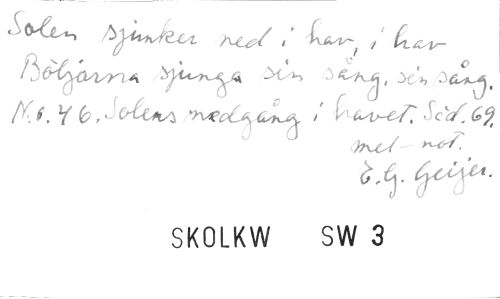 Solen sjunker ned i hav, i hav
Böljorna sjunga sin sång, sin sång.
N.o. 46. Solens nedgång i havet. Sid. 69.
mel-not.
E.G. Geijer.
SKOLKW SW 3